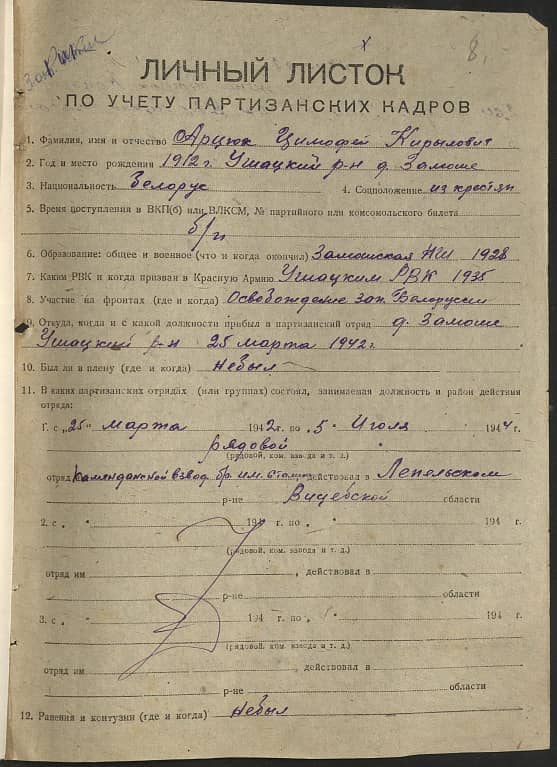 8.
ЛИЧНЫЙ ЛИСТОК
ПО УЧЕТУ ПАРТИЗАНСКИХ КАДРОВ
1. Фамилия, имя и отчество Арцюк Цимофей Кирылович
2. Год и место рождения 1912 г. Ушацкий р-н д. Замоше
3. Национальность Белорус 4. Соцположение из крестян
5. Время поступления в ВКП(б) или ВЛКСМ, № партийного или комсомольского билета
б/п
6. Образование: общее и военное (что и когда окончил) Замошская НШ 1928
7. Каким РВК и когда призван в Красную Армию Ушацким РВК 1935
8. Участие на фронтах (где и когда) Освобождение зап. Белорусии
9. Откуда, когда и с какой должности прибыл в партизанский отряд д. Замоше
Ушацкий р-н 25 марта 1942 г.
10. Был ли в плену (где и когда) Небыл
11. В каких партизанских отрядах (или группах) состоял, занимаемая должность и район действия
отряда:
1. с „25" Марта 1942 г. по „5" Июля 1944 г.
рядовой
(рядовой, ком. взвода и т. д.)
отряд Комендански взвод бр. им. Сталина действовал в Лепельском
р-не Вицебской области
2. с „ " 194 г. по „ " 194 г.
(рядовой, ком. взвода и т. д.)
отряд им , действовал в
р-не области
3. с „ " 194 г. по „ " 194 г.
(рядовой, ком. взвода и т. д.)
отряд им , действовал в
р-не области
12. Ранения и контузии (где и когда) Небыл